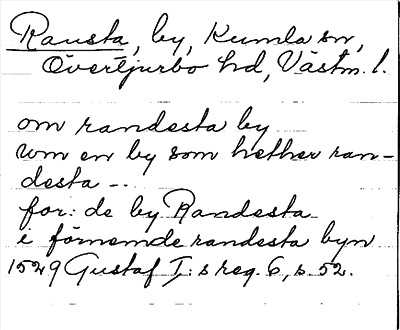 Ransta, by, Kumla sn,
Övertjurbo hd, Västm. l.
om randesta by
um en by som hether ran-
desta –.
for: de by Randesta
i förnemde randesta byn
1529 Gustaf I: s reg. 6, s. 52.